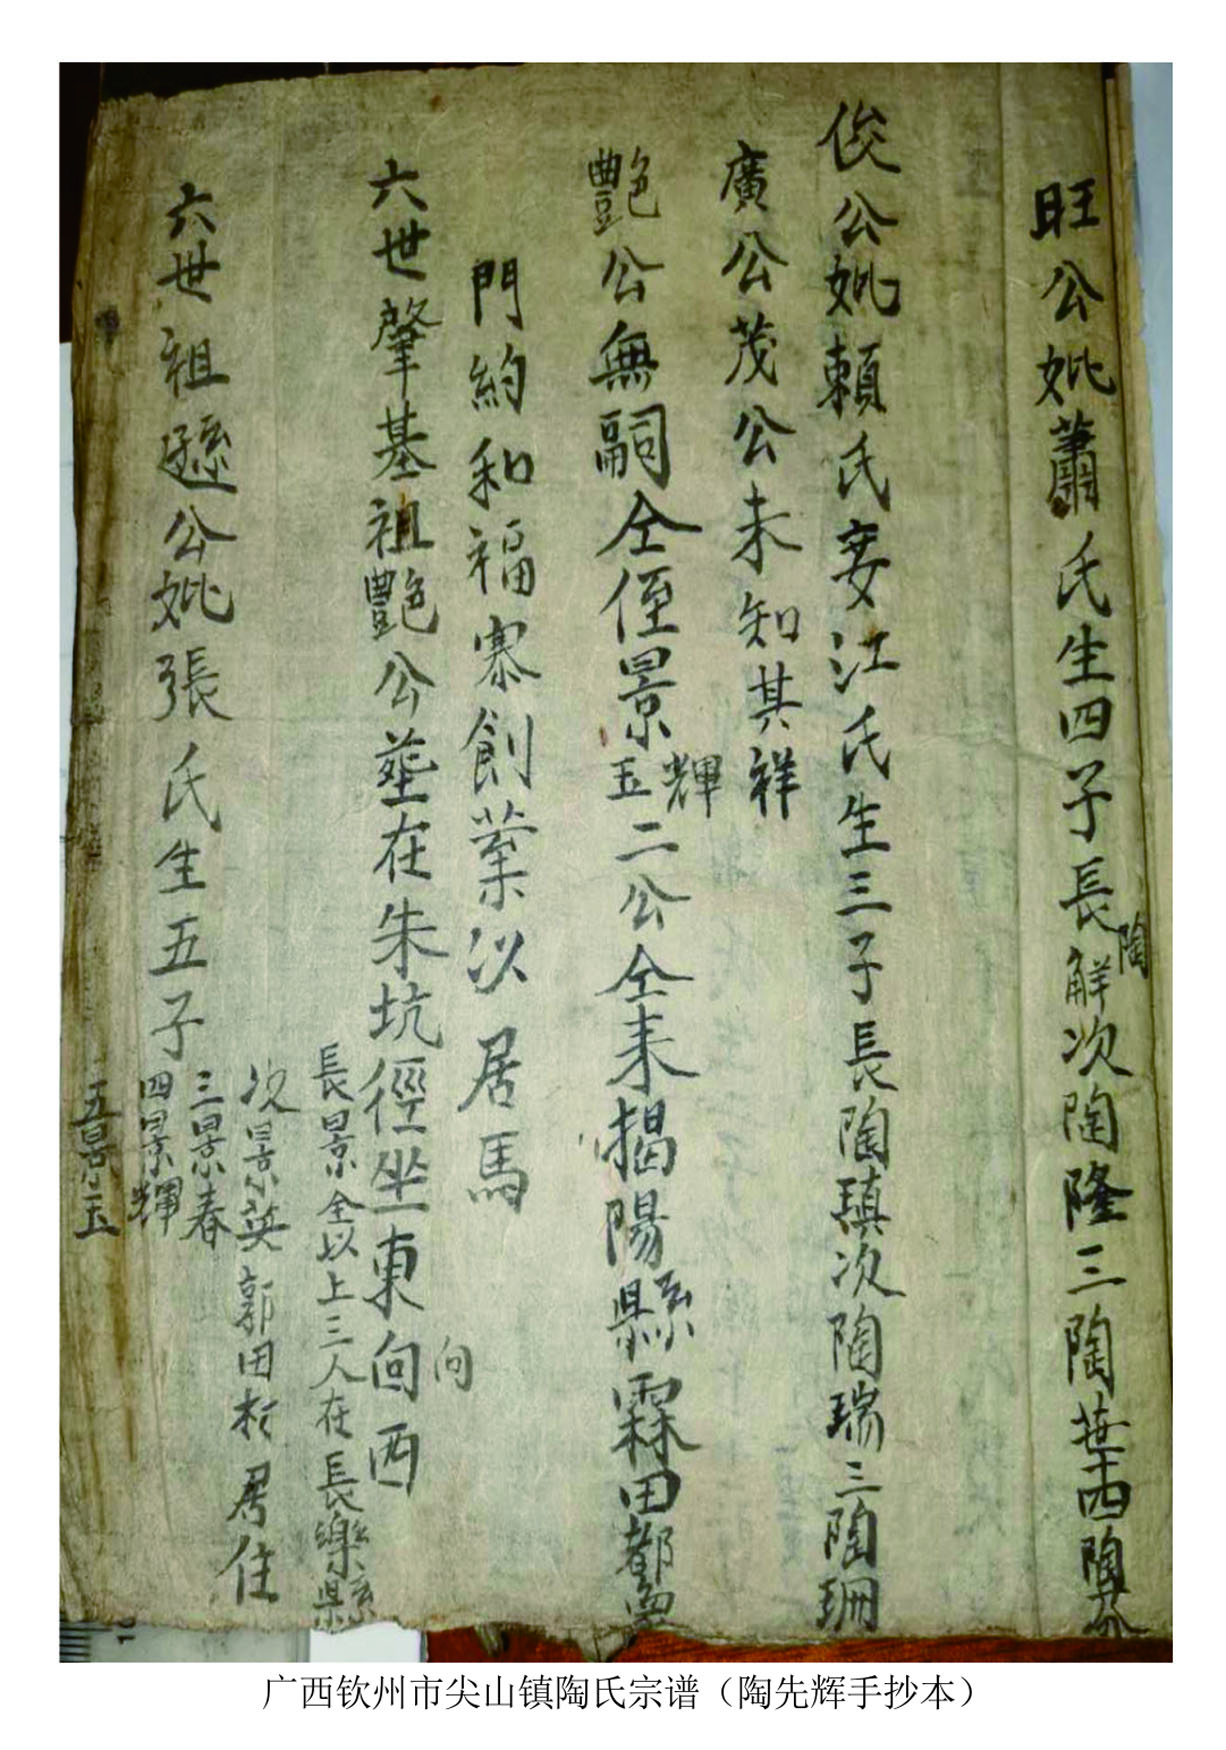 旺公妣蕭氏生四子長陶解次陶隆三陶葉四陶
俊公妣賴氏妾江氏生三子長陶瑱次陶瑞三陶珊
廣公茂公未知其祥
艷公無嗣仝侄景輝玉二公仝来揭陽縣霖田都
門約和福寨創業以居馬
六世肇基祖艷公塟在朱坑徑坐東向西
向
六世祖遜公妣張氏生五子
長景全以上三人在長樂縣
次景英郭田村居住
三景春
四景輝
五景玉
广西钦州市尖山镇陶氏宗谱（陶先辉手抄本）